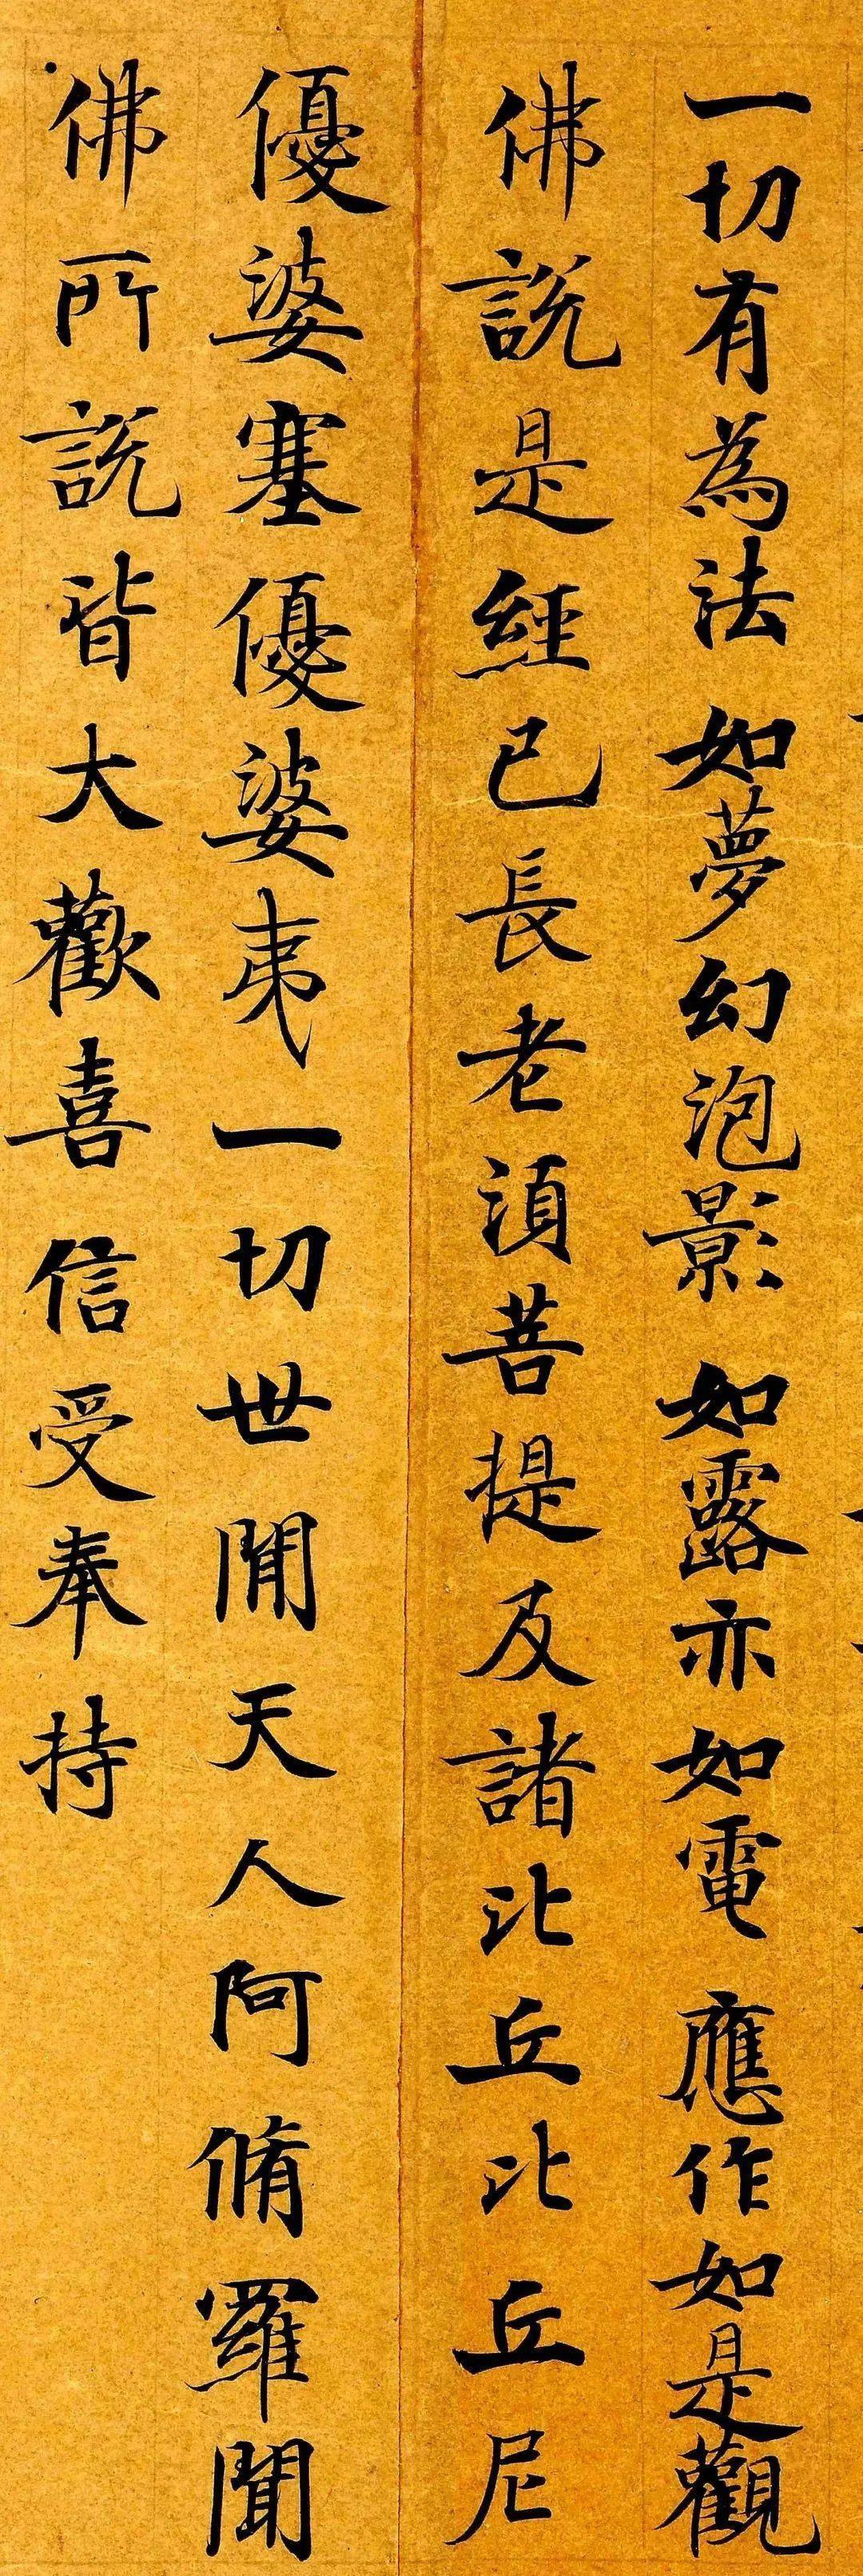 一切有為法 如夢幻泡影 如露亦如電 應作如是觀
佛說是經已長老須菩提及諸比丘比丘尼
優婆塞優婆夷一切世間天人阿脩羅聞
佛所說皆大歡喜信受奉持